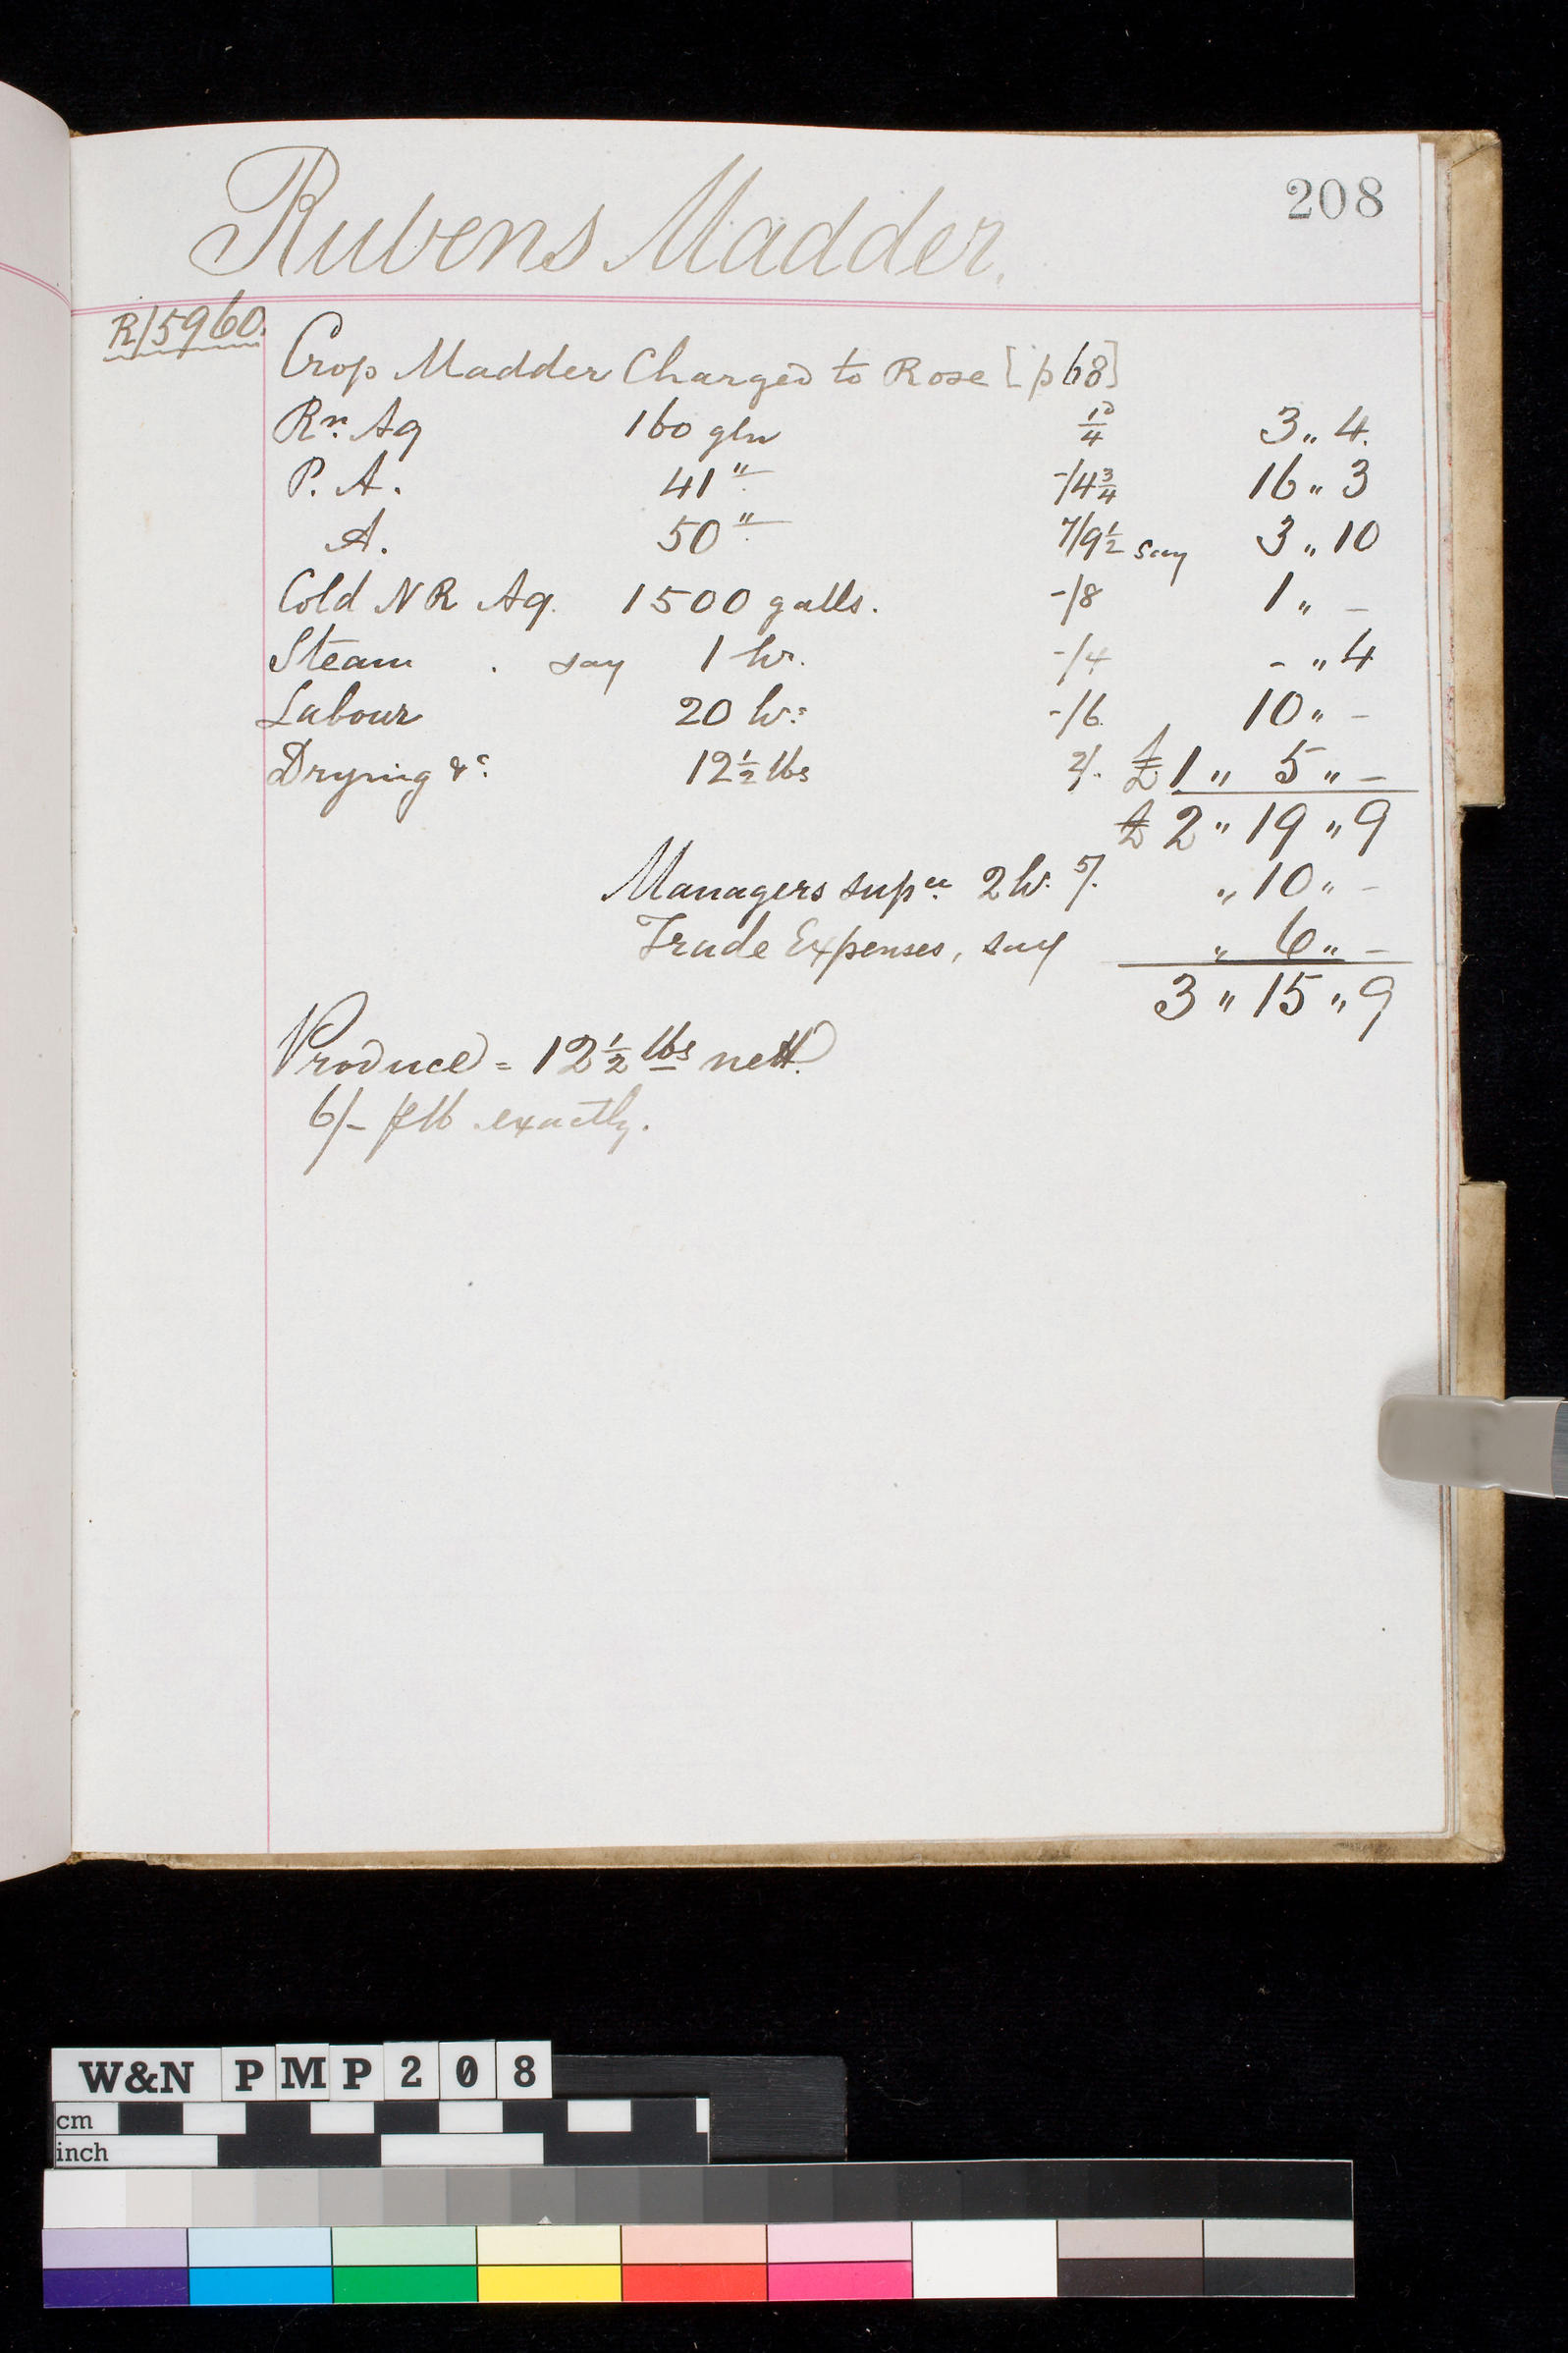 208
Rubens Madder.
R/5960.
Crop Madder Charged to Rose [p 68]
Rn. Aq 160 gln 1d/4 3 „ 4.
P. A. 41 " -/4¾ 16 „ 3
A. 50 " 7/9½ say 3 „ 10
Cold N R Aq. 1500 galls. -/8 1 „ –
Steam . say 1 hr. -/4 – „ 4
Labour 20 hrs -/6 10 „ –
Drying &c. 12½ lbs 2/. £1 „ 5 „ –
£2 „ 19 „ 9
Managers supce. 2 hr. 5/. „ 10 „ –
Trade Expenses, say „ 6 „ –
3 „ 15 „ 9
Produce = 12½ lbs nett.
6/- ⅌ lb exactly.
W&N PMP208
cm
inch